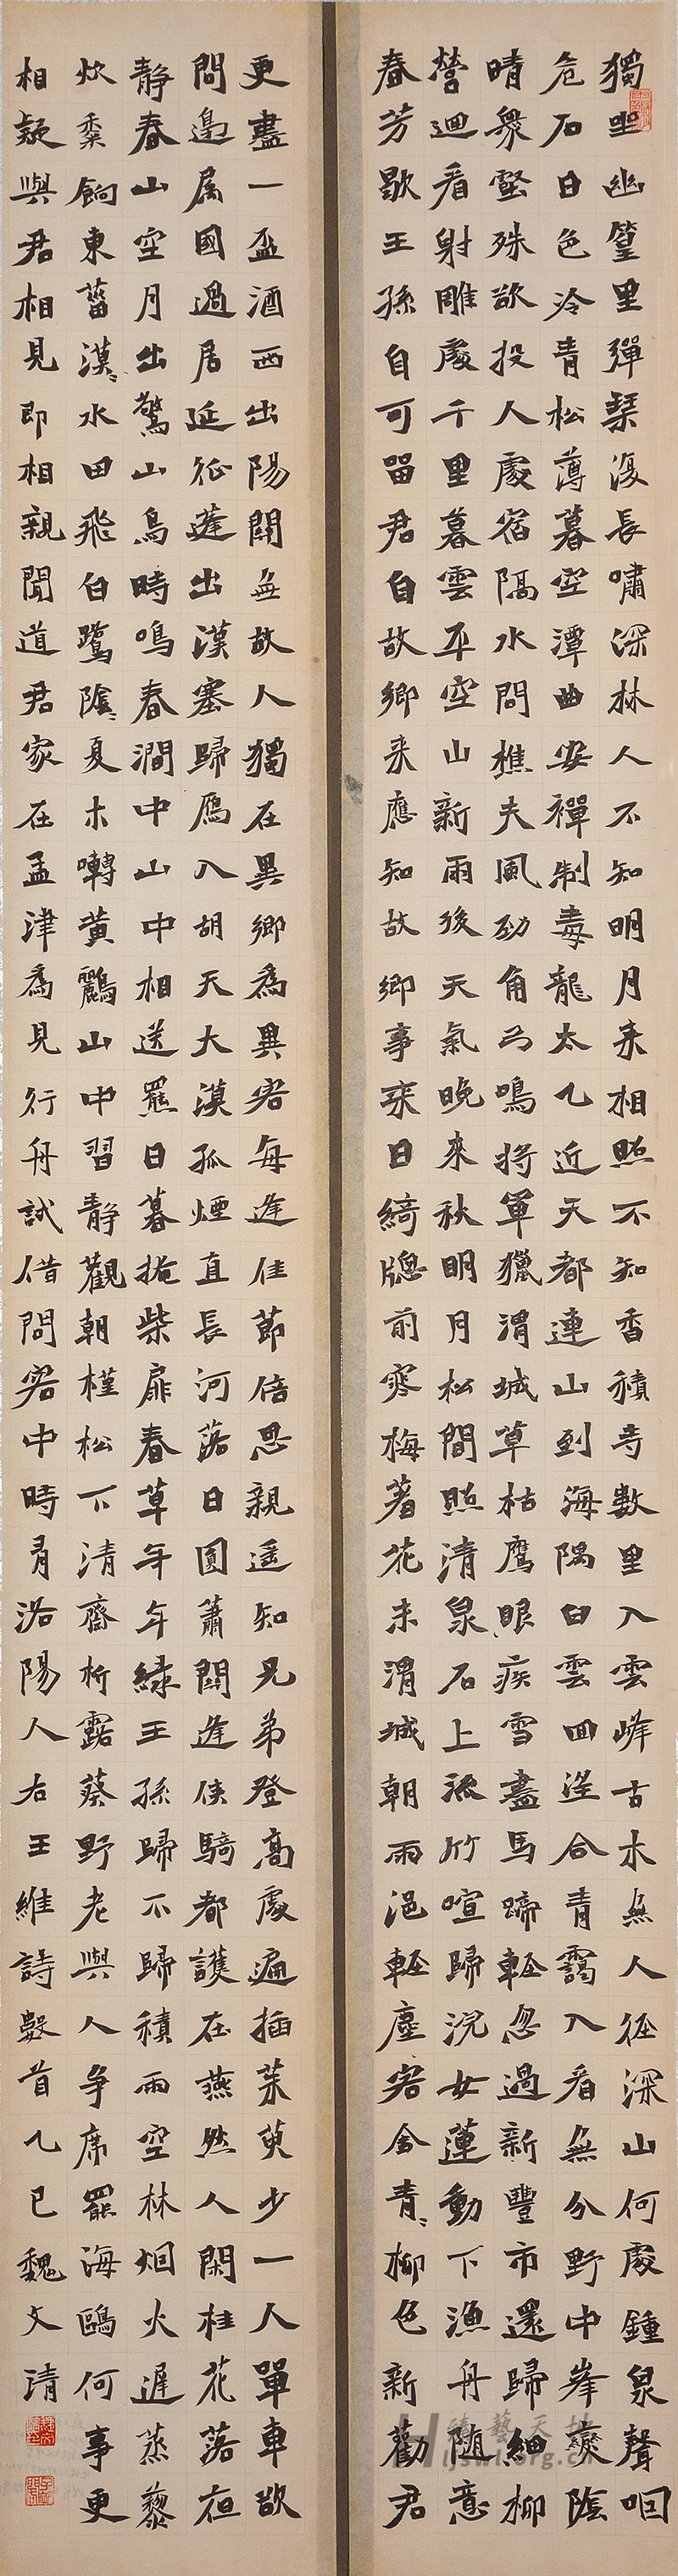 獨坐幽篁里彈琴復長嘯深林人不知明月来相照不知香積寺數里入雲峰古木無人徑深山何處鍾泉聲咽
危石日色冷青松薄暮空潭曲安禪制毒龍太乙近天都連山到海隅白雲回望合青靄入看無分野中峯變陰
晴衆壑殊欲投人處宿隔水問樵夫風勁角弓鳴將軍獵渭城草枯鷹眼疾雪盡馬蹄輕忽過新豐市還歸細柳
營迴看射雕處千里暮雲平空山新雨後天氣晚來秋明月松間照清泉石上流竹喧歸浣女蓮動下漁舟随意
春芳歇王孫自可留君自故鄉来應知故鄉事来日綺牕前寒梅著花未渭城朝雨浥輕塵客舍青〻柳色新勸君
更盡一盃酒西出陽關無故人獨在異鄉為異客每逢佳節倍思親遥知兄弟登高處遍插茱萸少一人單車欲
問邊属國過居延征蓬出漢塞歸鴈入胡天大漠孤煙直長河落日圓蕭關逢侯騎都護在燕然人閑桂花落夜
靜春山空月出驚山鳥時鳴春澗中山中相送罷日暮掩柴扉春草年年緑王孫歸不歸積雨空林烟火遲蒸藜
炊黍餉東菑漠〻水田飛白鷺陰〻夏木囀黄鸝山中習靜觀朝槿松下清齋折露葵野老與人争席罷海鷗何事更
相疑與君相見即相親聞道君家在孟津為見行舟試借問客中時有洛陽人右王維詩數首乙巳魏文清